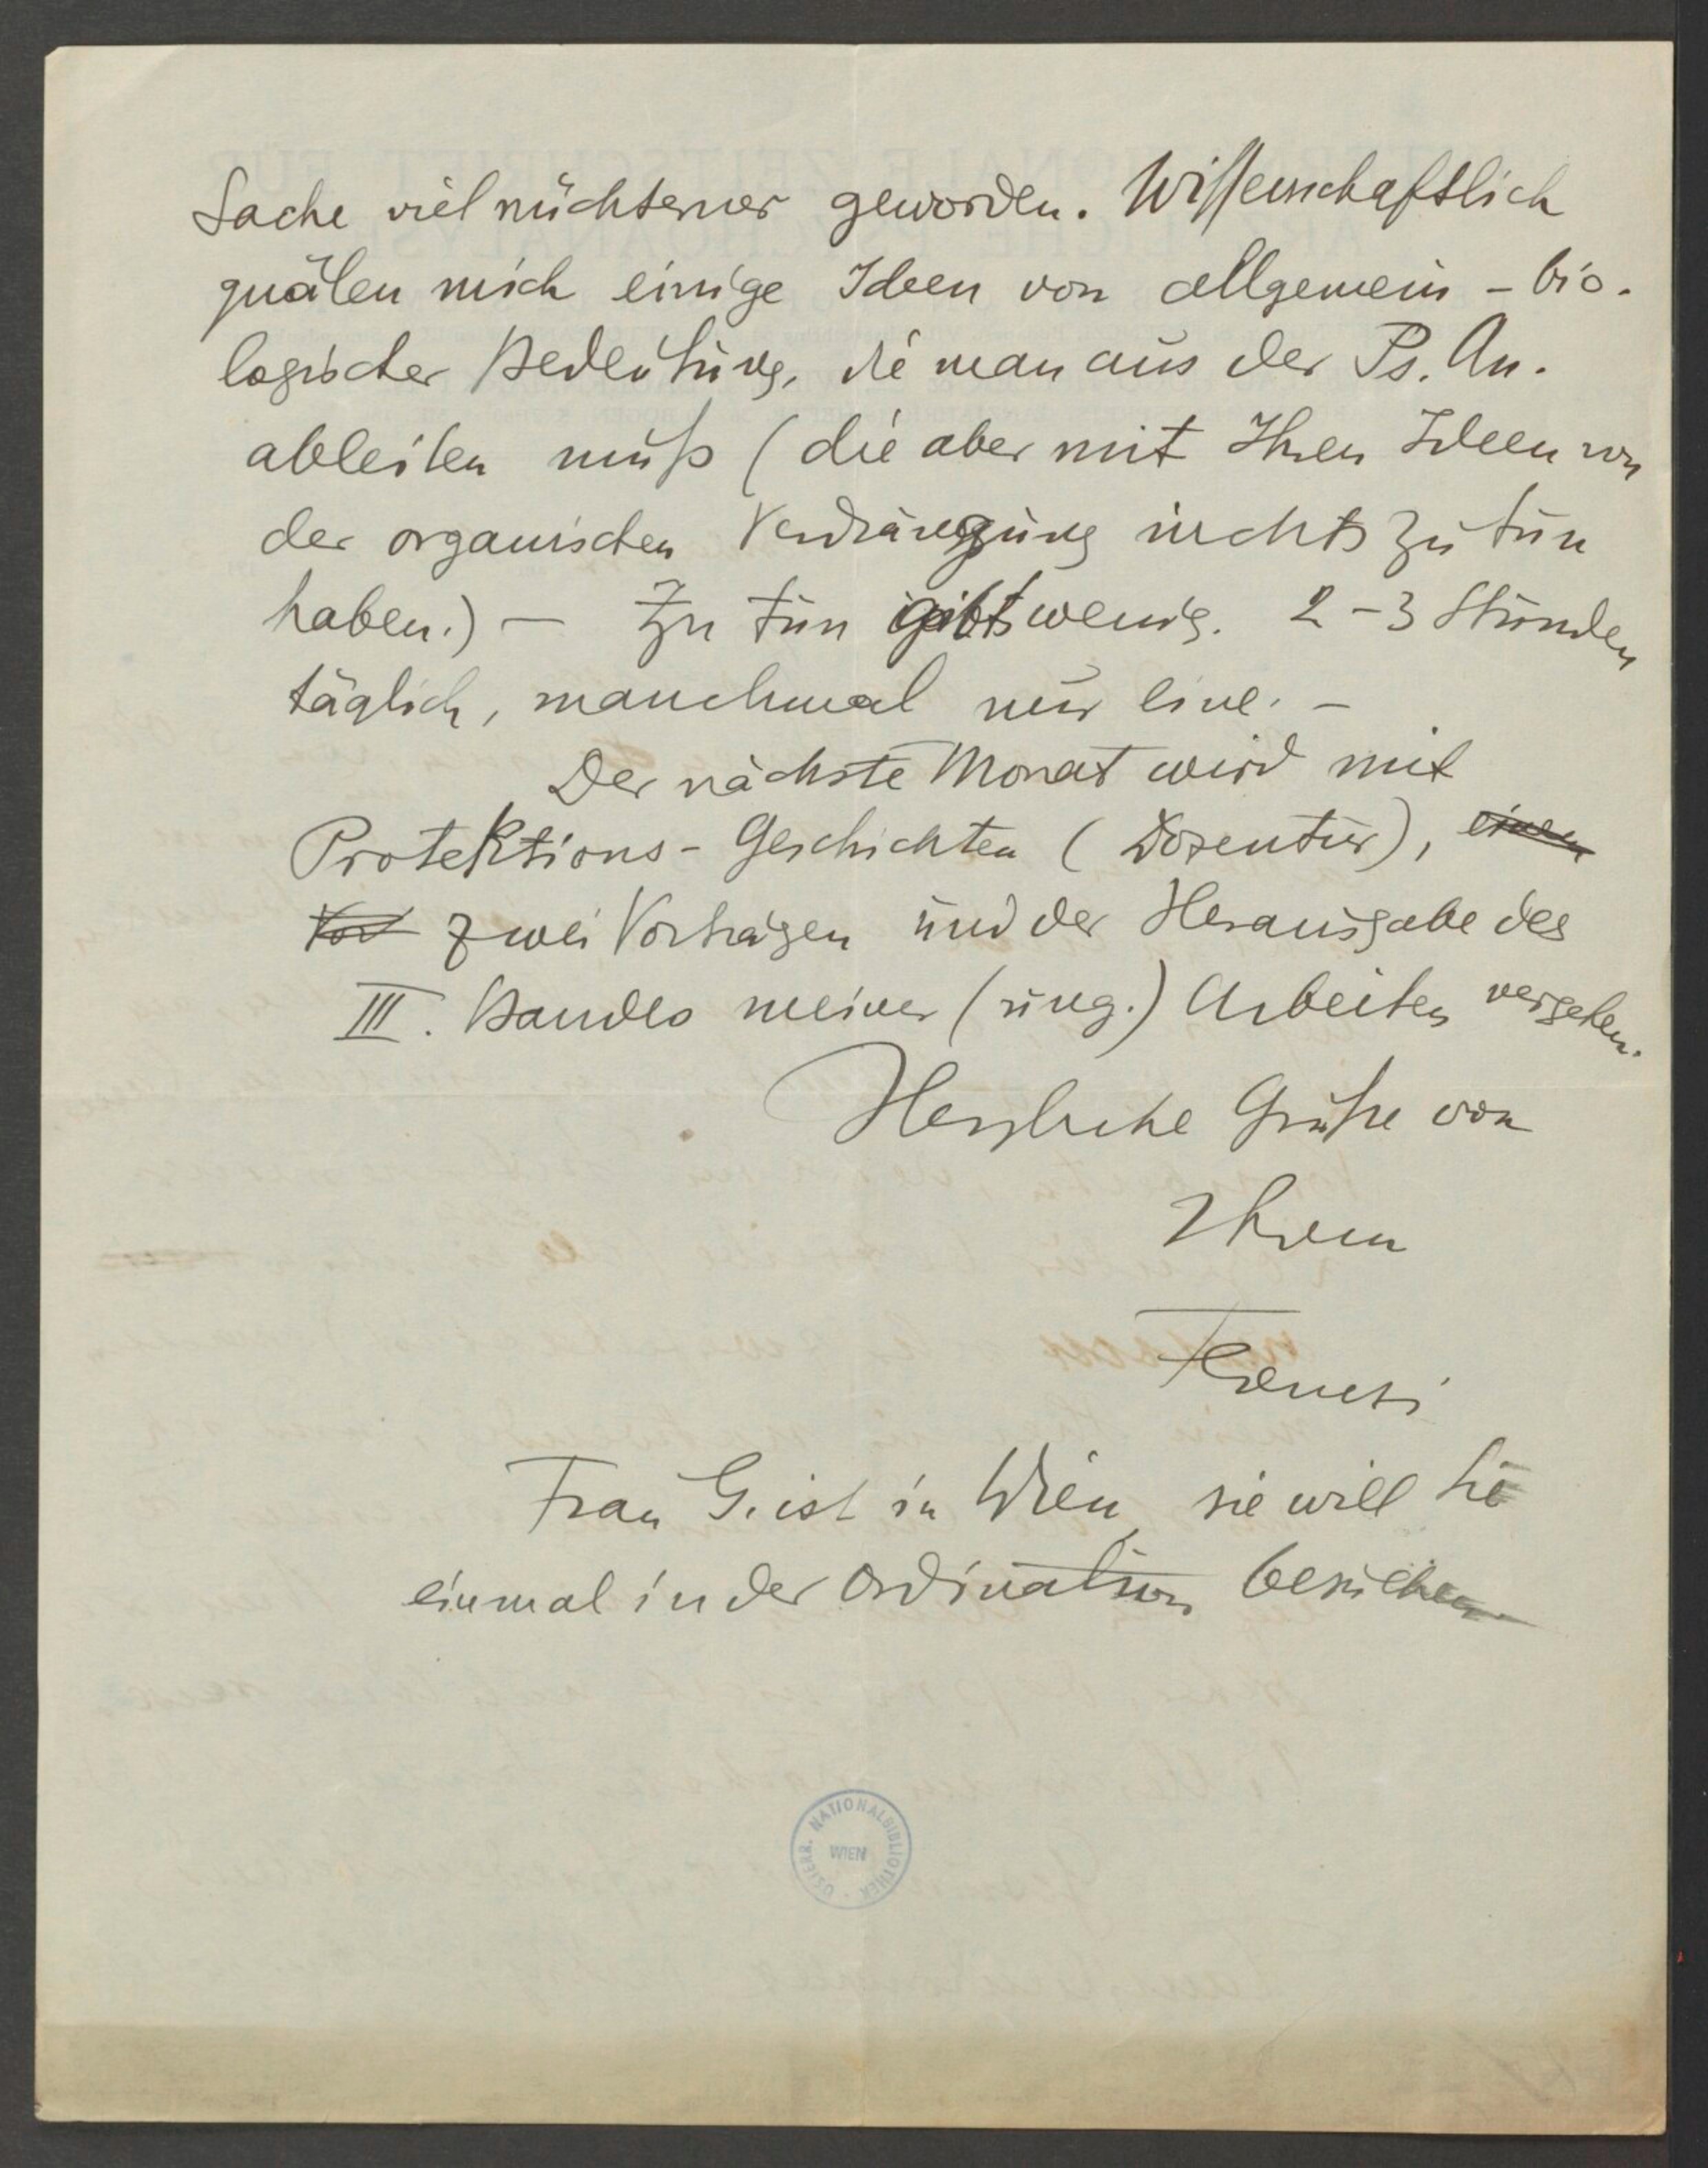 Sache viel nüchterner geworden. Wissenschaftlich
quälen mich einige Ideen von allgemein-bio-
logischer Bedeutung, die man aus der Ps. An.
ableiten muß (die aber mit Ihren Ideen von
der organischen Verdrängung nichts zu tun
haben.) — Zu tun gibts wenig. 2-3 Stunden
täglich, manchmal nur eine. —
Der nächste Monat wird mit
Protektions-Geschichten (Dozentur), einen
Vort zwei Vorträgen und der Herausgabe des
III. Bandes meiner (ung.) Arbeiten vergehen.
Herzliche Grüße von
Ihrem
Ferenczi
Frau G. ist in Wien, sie will Sie
einmal in der Ordination besuchen.
ÖSTERR. NATIONALBIBLIOTHEK
WIEN